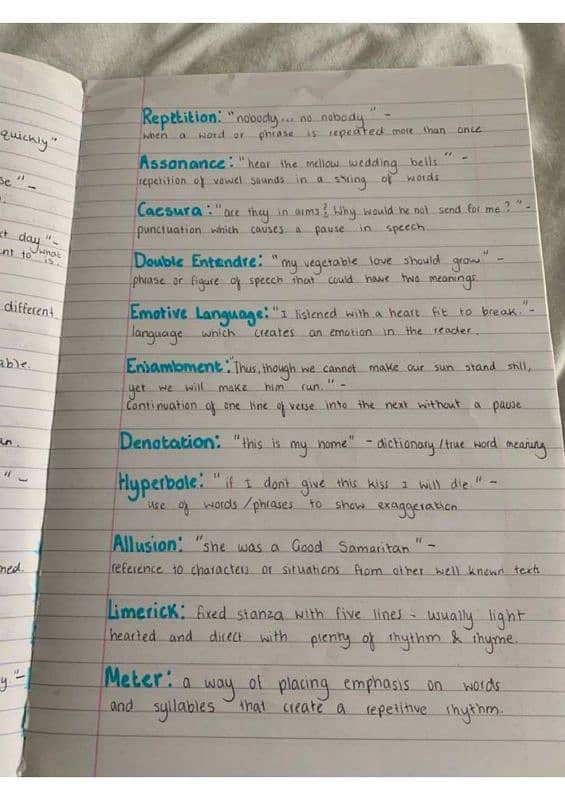 quickly"
se" -
t day" -
nt to what is.
different
able.
an.
" -
ned.
y." -
Repetition: "nobody... no nobody" -
when a word or phrase is repeated more than once
Assonance: "hear the mellow wedding bells" -
repetition of vowel sounds in a string of words
Caesura: "are they in arms? Why would he not send for me?" -
punctuation which causes a pause in speech
Double Entendre: "my vegetable love should grow" -
phrase or figure of speech that could have two meanings
Emotive Language: "I listened with a heart fit to break." -
language which creates an emotion in the reader.
Enjambment: "Thus, though we cannot make our sun stand still,
yet we will make him run." -
Continuation of one line of verse into the next without a pause
Denotation: "this is my home" - dictionary/true word meaning
Hyperbole: "if I don't give this kiss I will die." -
use of words/phrases to show exaggeration
Allusion: "she was a Good Samaritan" -
reference to characters or situations from other well known texts
Limerick: fixed stanza with five lines - usually light
hearted and direct with plenty of rhythm & rhyme.
Meter: a way of placing emphasis on words
and syllables that create a repetitive rhythm.